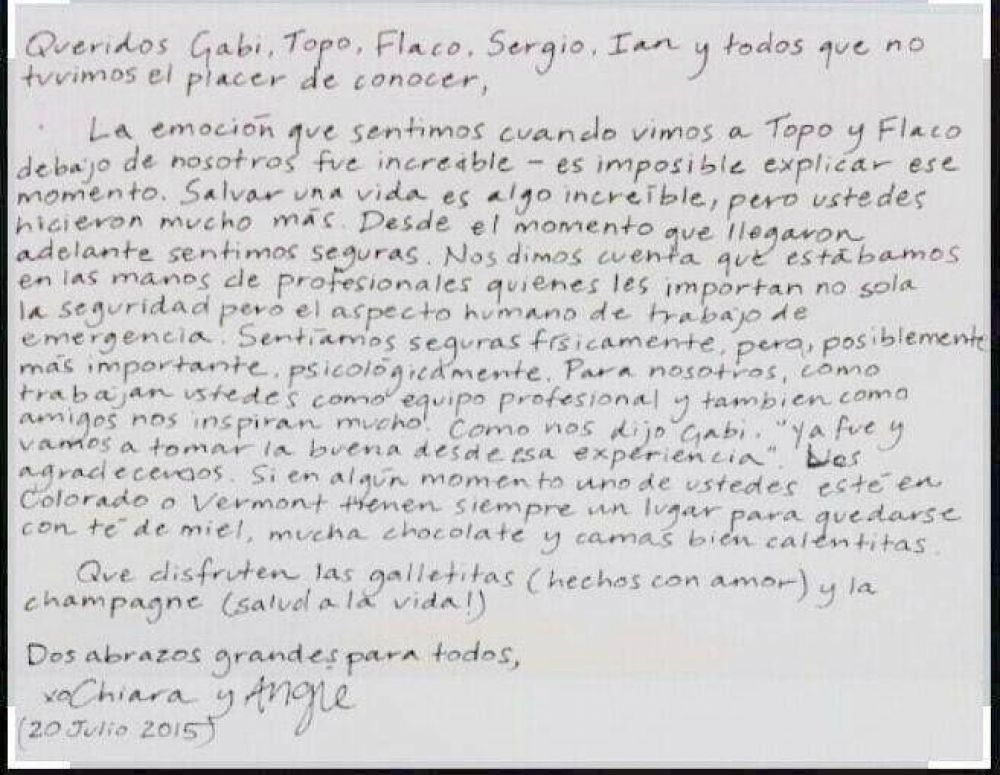 Queridos Gabi, Topo, Flaco, Sergio, Ian y todos que no
tuvimos el placer de conocer,
La emoción que sentimos cuando vimos a Topo y Flaco
debajo de nosotros fue increable - es imposible explicar ese
momento. Salvar una vida es algo increíble, pero ustedes
hicieron mucho más. Desde el momento que llegaron
adelante sentimos seguras. Nos dimos cuenta que estábamos
en las manos de profesionales quienes les importan no sola
la seguridad pero el aspecto humano de trabajo de
emergencia. Sentíamos seguras físicamente, pero, posiblemente
más importante, psicológicamente. Para nosotros, como
trabajan ustedes como equipo profesional y tambien como
amigos nos inspiran mucho. Como nos dijo Gabi, "Ya fue y
vamos a tomar la buena desde esa experiencia". Les
agradecemos. Si en algún momento uno de ustedes esté en
Colorado o Vermont tienen siempre un lugar para quedarse
con té de miel, mucha chocolate y camas bien calentitas.
Que disfruten las galletitas (hechos con amor) y la
champagne (salud a la vida!)
Dos abrazos grandes para todos,
xo Chiara y Angie
(20 Julio 2015)